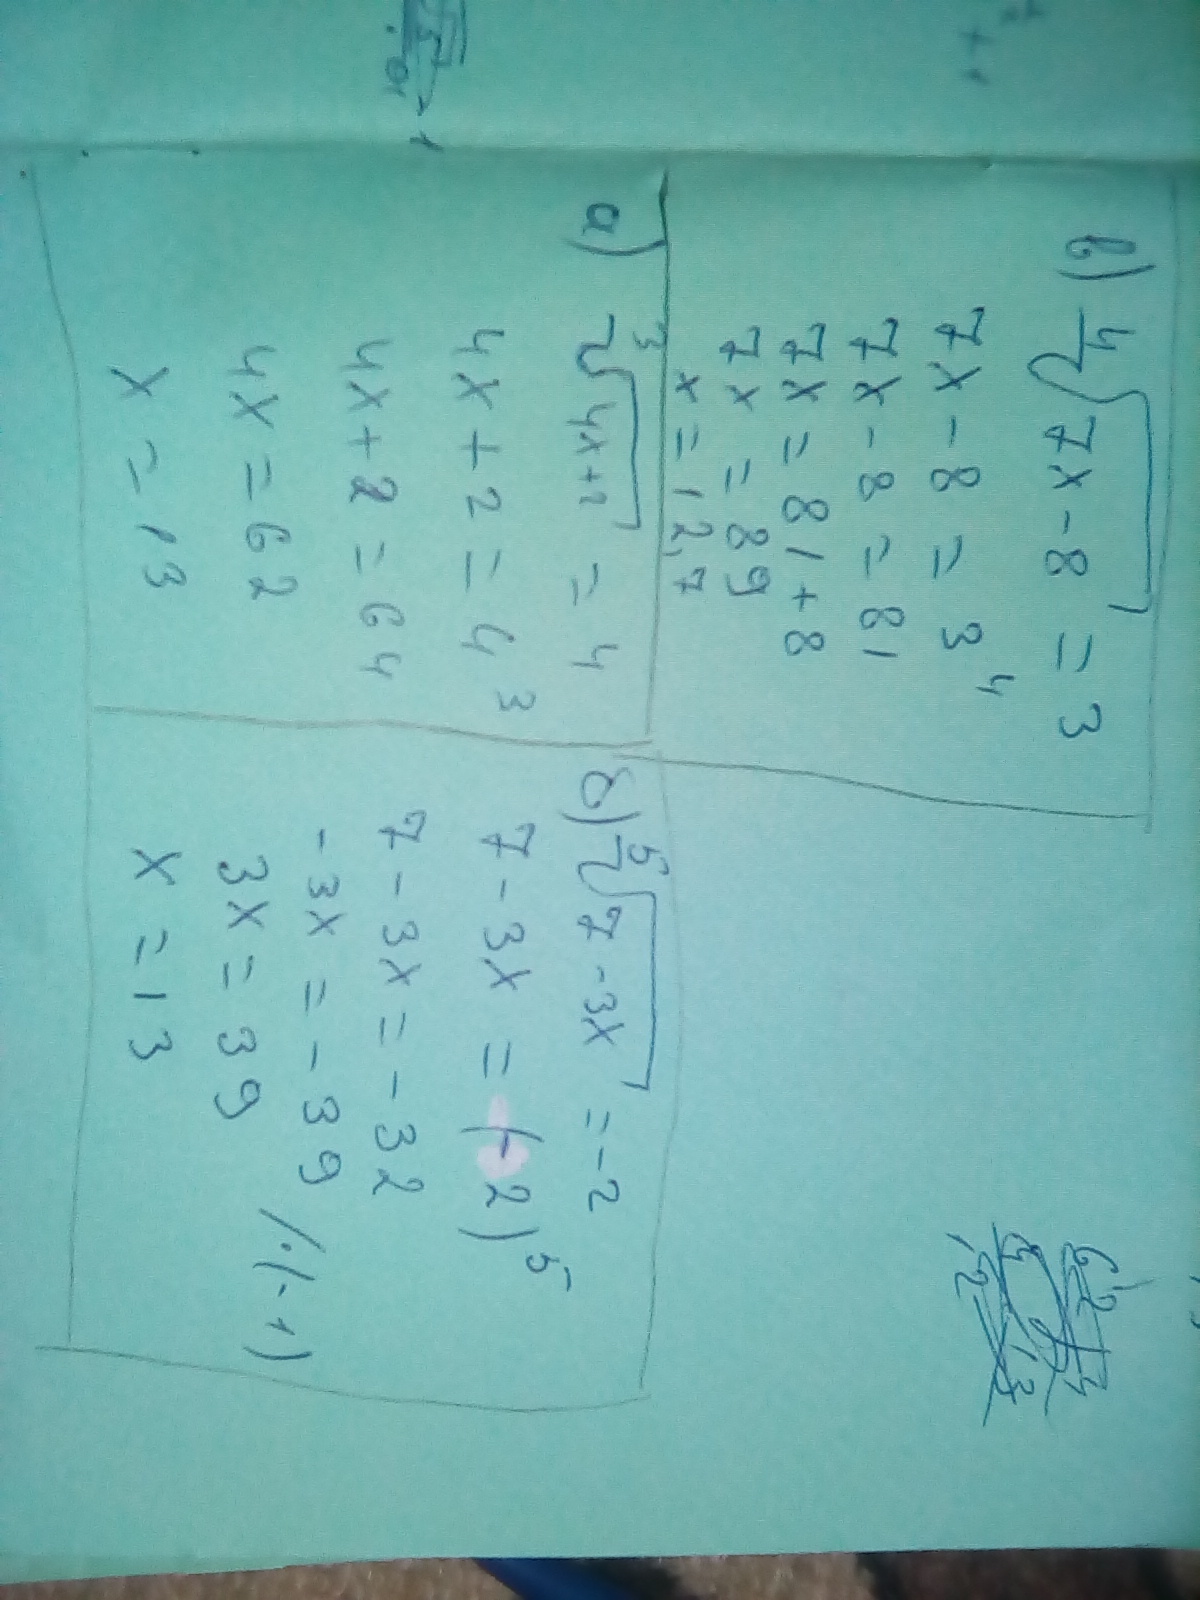 в) ⁴√7x-8 = 3
7x-8 = 3⁴
7x-8 = 81
7x = 81+8
7x = 89
x = 12,7
а) ³√4x+2 = 4
4x+2 = 4³
4x+2 = 64
4x = 62
x = 13
б) ⁵√7-3x = -2
7-3x = (-2)⁵
7-3x = -32
-3x = -39 /·(-1)
3x = 39
x = 13